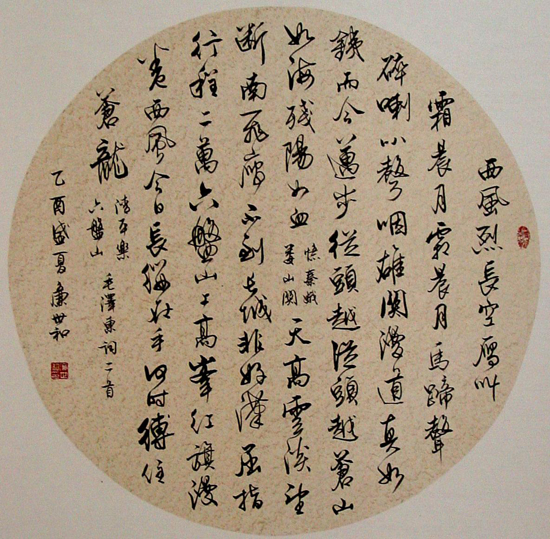 西風烈長空雁叫
霜晨月霜晨月馬蹄聲
碎喇叭聲咽雄關漫道真如
鐵而今邁步從頭越從頭越蒼山
如海殘陽如血憶秦娥婁山關天高雲淡望
斷南飛雁不到長城非好漢屈指
行程二萬六盤山上高峯紅旗漫
卷西風今日長纓在手何時縛住
蒼龍清平樂六盤山毛澤東詞二首
乙酉盛夏廉世和